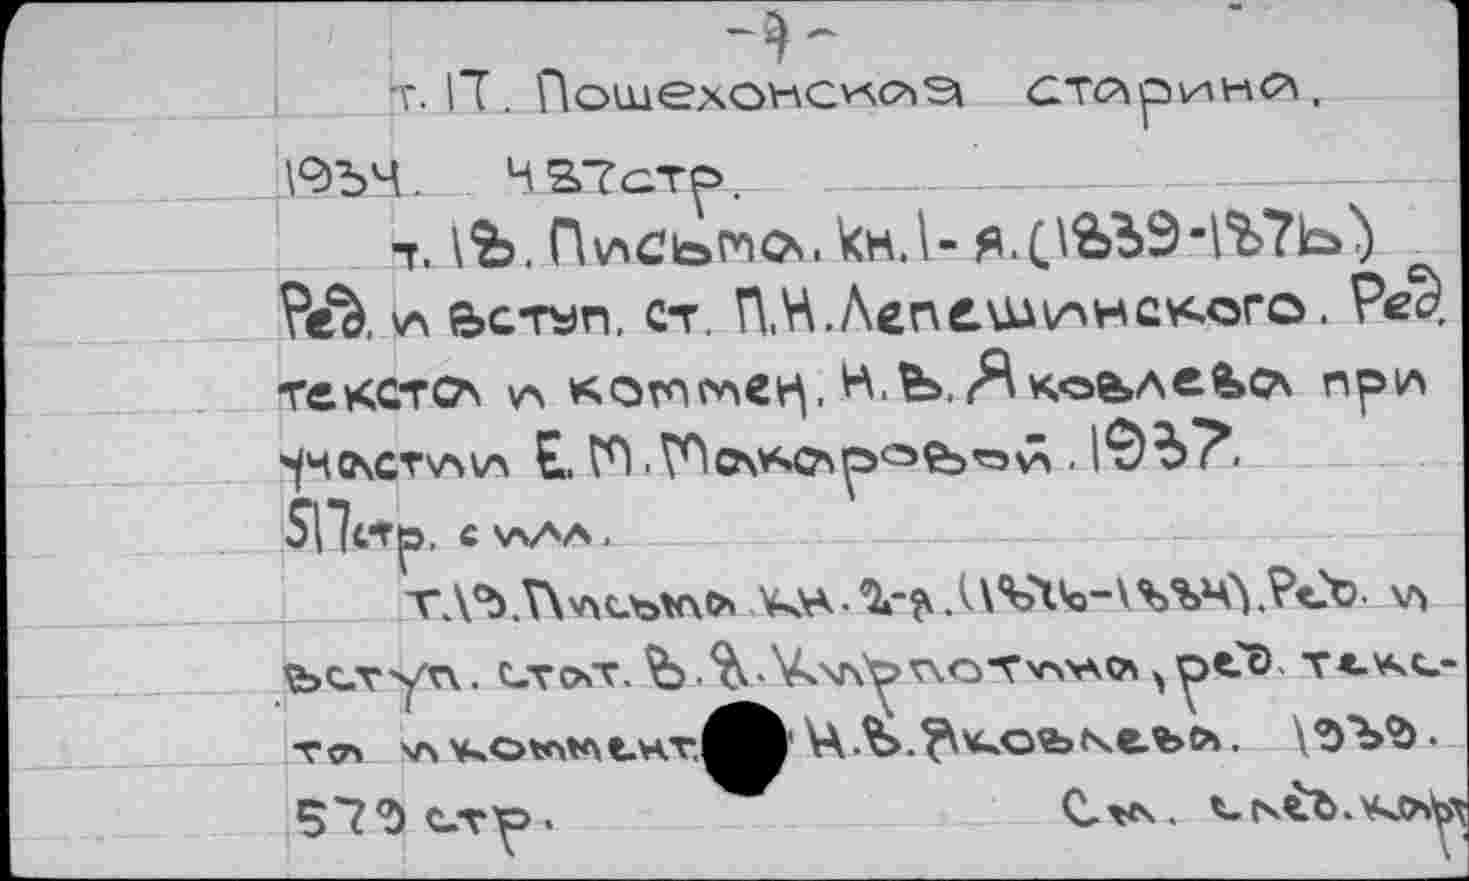 - 9 -
т. 17. Пошехонская старина.
1934. 427стр.
т. 18. Письма. Кн.1-я.(1839-1876)
Ред. и вступ. ст. П.Н.Лепешинского. Ред.
текста и коммен. Н.В.Яковлева при
участии Е.М.Макаровой. 1937.
517стр. с илл.
т.19.Письма кн.2-я.(1876-1884).Ред. и
вступ. стат. В.Я.Кирпотина, ред. текс-
та и коммент. Н.В.Яковлева. 1939.
579 стр. См. след.карт